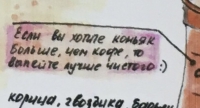 Если вы хотите коньяк
больше, чем кофе, то
выпейте лучше чистого :)
корица, гвоздика,